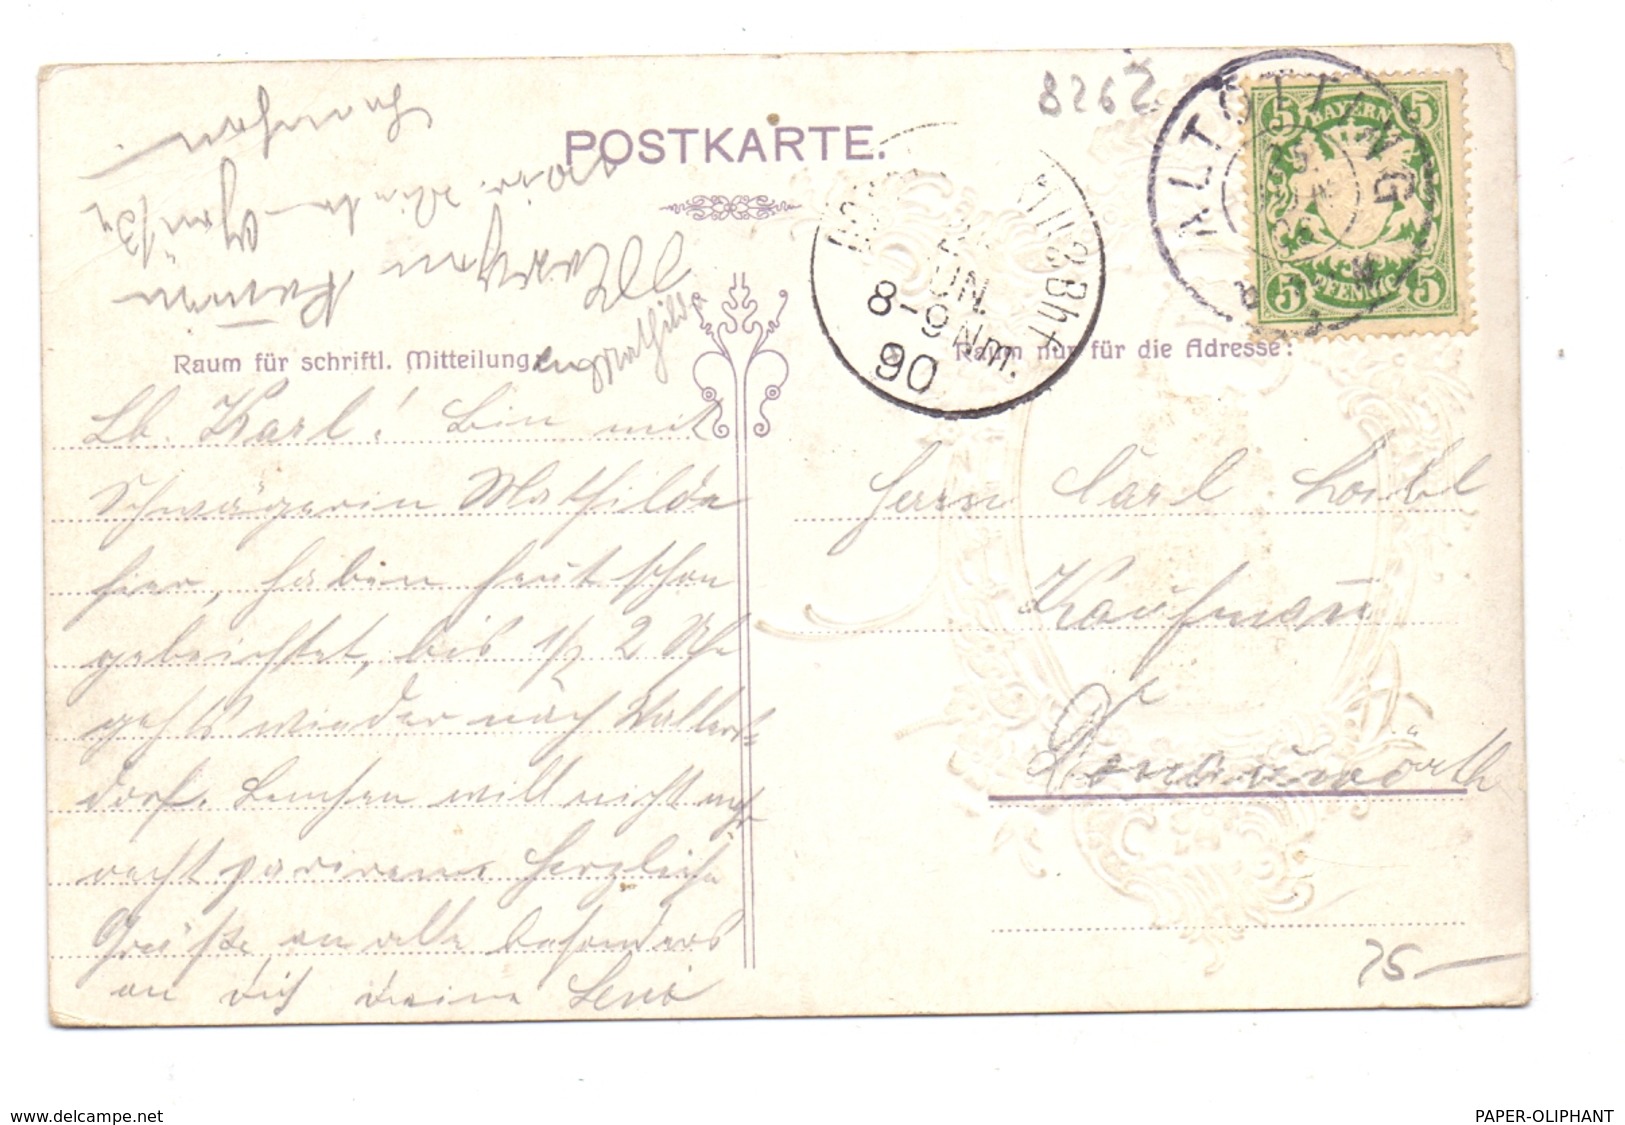 8262
POSTKARTE.
ALTÖTTING
BAYERN
5 5
5 5
PFENNIG
JUN.
8-9 Nm.
90
Bhf
Raum für schriftl. Mitteilung
Raum nur für die Adresse:
Lb. Karl! Bin mit
Schwägerin Mathilde
hier, haben heut schon
gebeichtet, bis 1/2 2 Uhr
gehts wieder nach Wallers-
dorf. Lenchen will nicht
recht parieren. Herzliche
Grüße an alle besonders
an dich Deine Leni
Herrn Carl Loibl
Kaufmann
Donauwörth
75 —
delcampe.net
PAPER-OLIPHANT